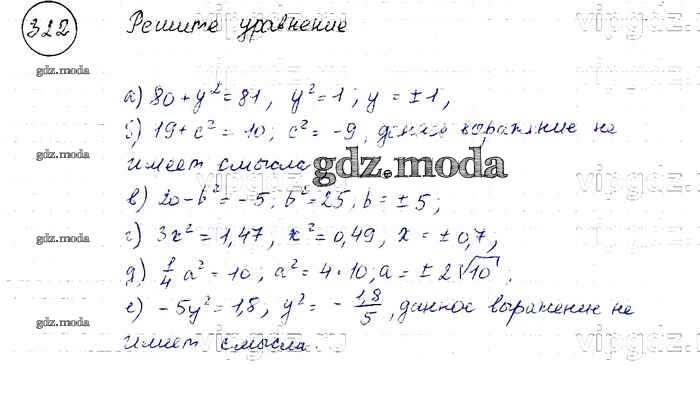 322 Решите уравнение
gdz.moda
а) 80 + y² = 81, y² = 1; y = ±1;
б) 19 + c² = 10; c² = -9, данное выражение не
gdz.moda
имеет смысла
gdz.moda
в) 20 - b² = -5; b² = 25, b = ±5;
г) 3x² = 1,47, x² = 0,49, x = ±0,7;
gdz.moda
д) 1/4 a² = 10; a² = 4·10; a = ±2√10;
е) -5y² = 1,8; y² = -1,8/5, данное выражение не
gdz.moda
имеет смысла.
vipgdz.com